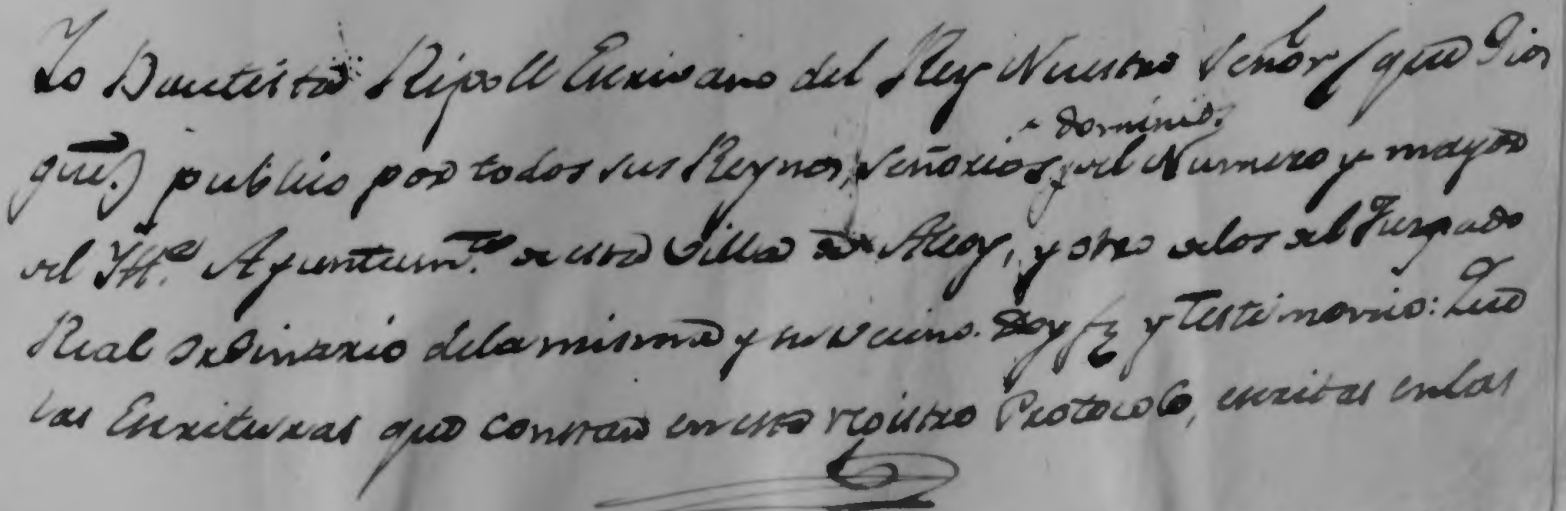 Yo Bautista Ripoll Escrivano del Rey Nuestro Señor (que Dios
gue.) publico por todos sus Reynos, Señorios y dominios, del Numero y mayor
del Itt.e Ayuntam.to de esta Villa de Alcoy, y otro delos del Jusgado
Real ordinario dela misma y su vecino. Doy fe y Testimonio: Que
las Escrituras que constan en este registro Protocolo, escritas en las